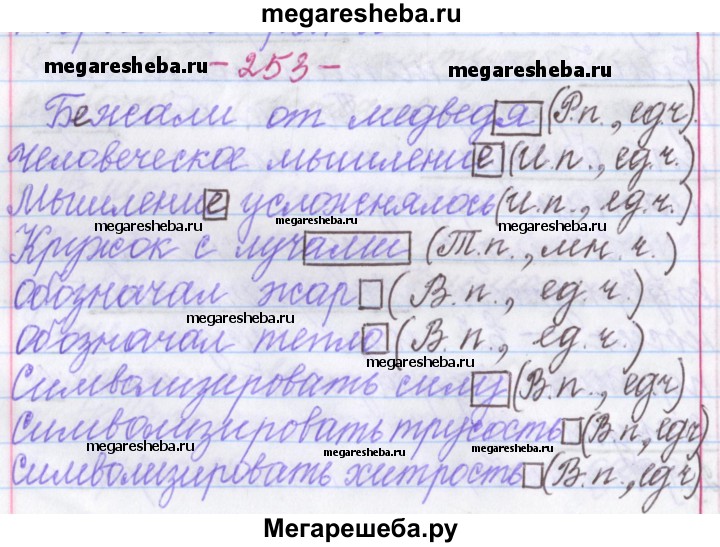 megaresheba.ru
- 253 -
megaresheba.ru
megaresheba.ru
Бежали от медведя (Р.п., ед.ч).
Человеческое мышление (И.п., ед.ч.)
Мышление усложнялось (И.п., ед.ч.)
megaresheba.ru
megaresheba.ru
Кружок с лучами (Т.п., мн.ч.)
обозначал жар (В.п., ед.ч.)
megaresheba.ru
обозначал тепло (В.п., ед.ч.)
megaresheba.ru
Символизировать силу (В.п., ед.ч)
Символизировать трусость (В.п, ед.ч)
megaresheba.ru
megaresheba.ru
megaresheba.ru
символизировать хитрость (В.п., ед.ч)
Мегарешеба.ру